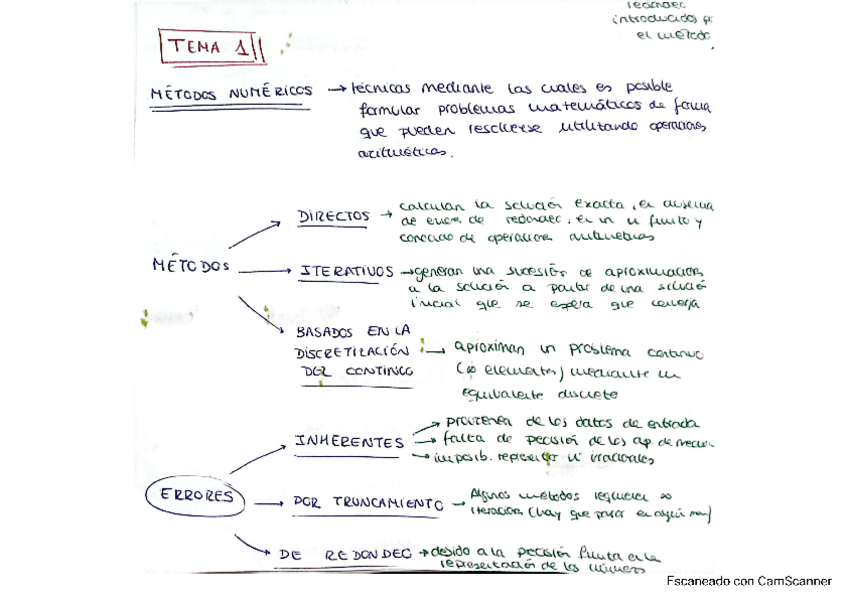 redondeo
introducidos p
el método
TEMA 1
MÉTODOS NUMÉRICOS → técnicas mediante las cuales es posible
formular problemas matemáticos de forma
que pueden resolverse utilizando operaciones
aritméticas.
DIRECTOS → calculan la solución exacta, en ausencia
de errores de redondeo, en un nº finito y
conocido de operaciones aritméticas
MÉTODOS
ITERATIVOS → generan una sucesión de aproximaciones
a la solución a partir de una solución
inicial que se espera que converja
BASADOS EN LA
DISCRETIZACIÓN
DEL CONTINUO
→ aproximan un problema continuo
(∞ elementos) mediante un
equivalente discreto
INHERENTES
→ provienen de los datos de entrada
→ falta de precisión de los ap. de medic.
→ imposib. representar nº irracionales
ERRORES
POR TRUNCAMIENTO → Algunos métodos requieren ∞
iteraciones (hay que parar en algún mom)
DE REDONDEO → debido a la precisión finita en la
representación de los números
Escaneado con CamScanner